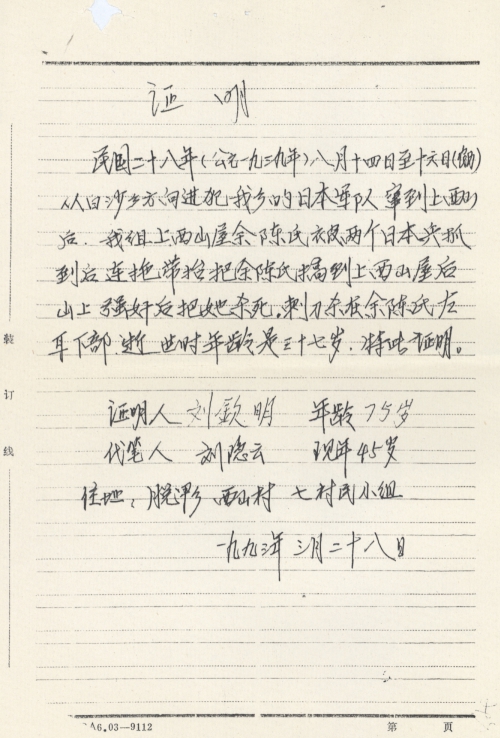 证 明
民国二十八年(公元一九三九年)八月十四日至十六日(农历)
从白沙乡方向进犯我乡的日本军队窜到上西山
后.我组上西山屋余陈氏被两个日本兵抓
到后连拖带抬把余陈氏搞到上西山屋后
山上强奸后把她杀死.刺刀杀在余陈氏左
耳下部.逝世时年龄是三十七岁.特此证明。
证明人 刘钦明 年龄75岁
代笔人 刘隐云 现年45岁
住地:脱甲乡 西山村 七村民小组
一九九三年三月二十八日
装
订
线
A6.03—9112 第 页